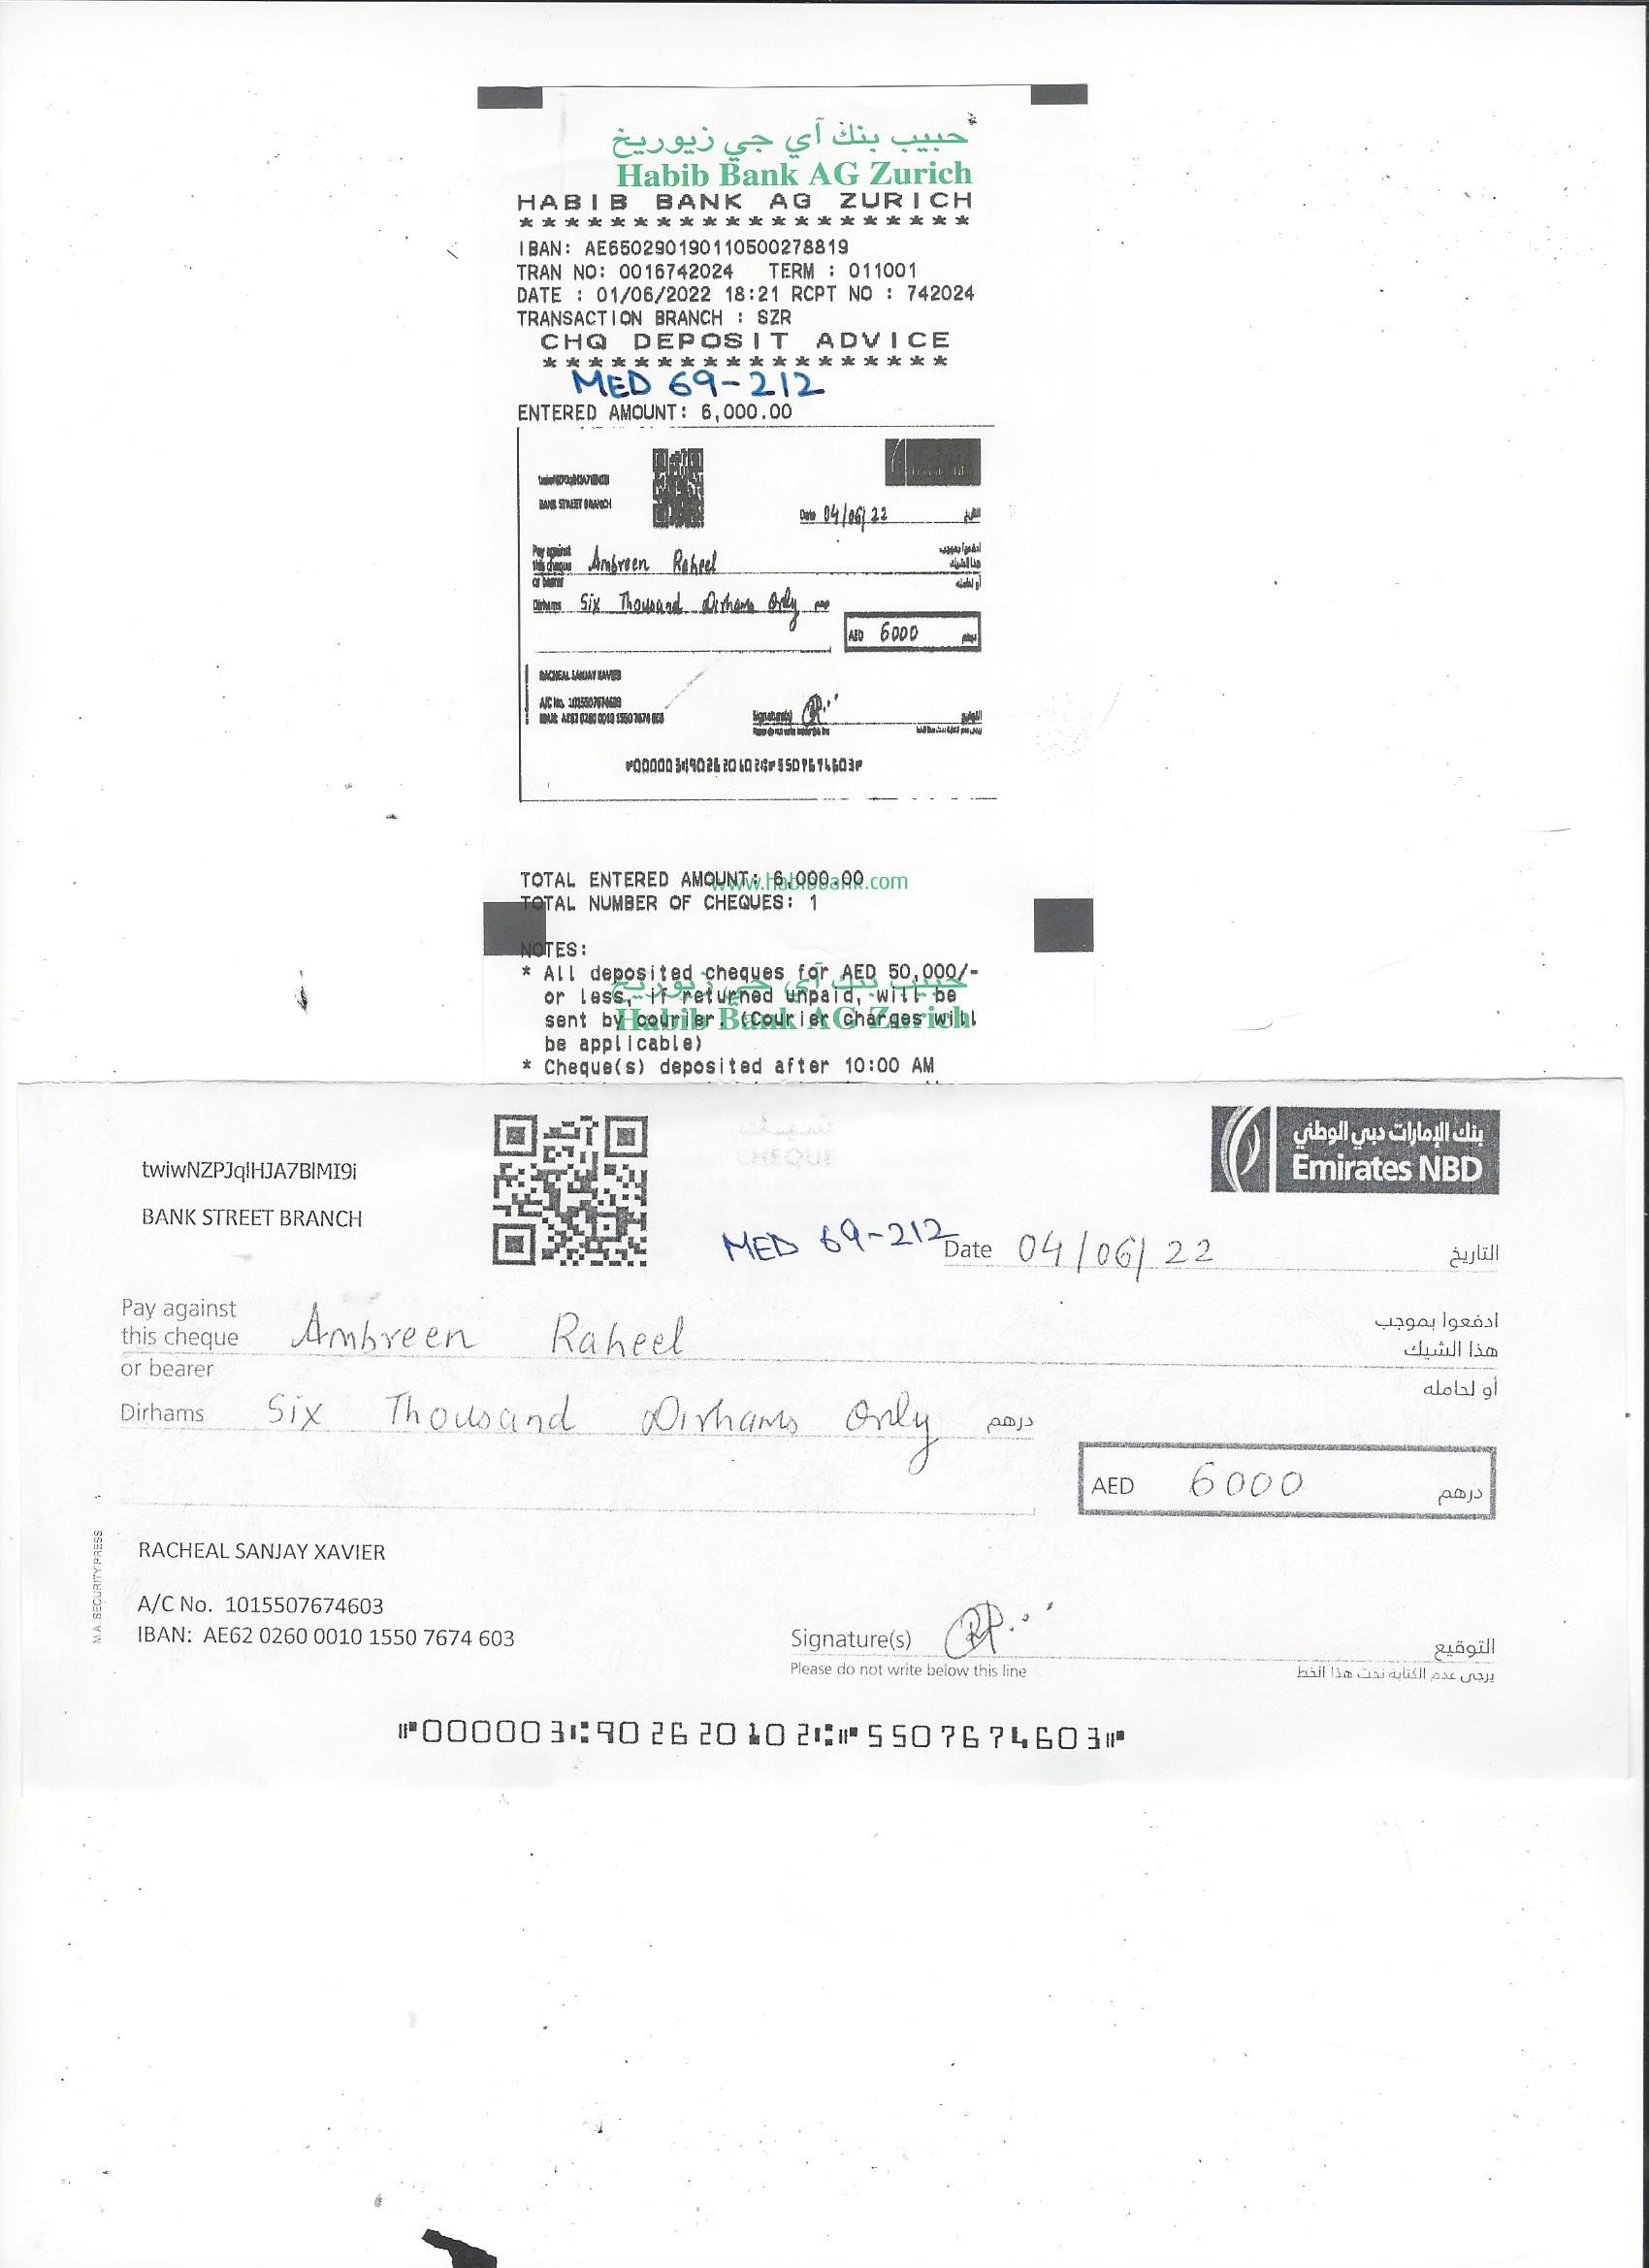 حبيب بنك آي جي زيوريخ
Habib Bank AG Zurich
HABIB BANK AG ZURICH
********************
IBAN: AE650290190110500278819
TRAN NO: 0016742024 TERM : 011001
DATE : 01/06/2022 18:21 RCPT NO : 742024
TRANSACTION BRANCH : SZR
CHQ DEPOSIT ADVICE
******************
MED 69-212
ENTERED AMOUNT: 6,000.00
BANK STREET BRANCH
Date 04/06/22 التاريخ
Pay against
this cheque Ambreen Raheel
or bearer
ادفعوا بموجب
هذا الشيك
أو لحامله
Dirhams Six Thousand Dirhams Only درهم
AED 6000 درهم
RACHEAL SANJAY XAVIER
A/C No. 1015507674603
IBAN: AE62 0260 0010 1550 7674 603
Signature(s) التوقيع
Please do not write below this line
⑈000003⑆902620102⑆⑈5507674603⑈
TOTAL ENTERED AMOUNT: 6,000.00
www.habibbank.com
TOTAL NUMBER OF CHEQUES: 1
NOTES:
* All deposited cheques for AED 50,000/-
حبيب بنك آي جي زيوريخ
or less, if returned unpaid, will be
sent by courier. (Courier charges will
Habib Bank AG Zurich
be applicable)
* Cheque(s) deposited after 10:00 AM
twiwNZPJqlHJA7BlMI9i
BANK STREET BRANCH
بنك الإمارات دبي الوطني
Emirates NBD
MED 69-212
Date 04/06/22 التاريخ
Pay against
this cheque Ambreen Raheel
or bearer
ادفعوا بموجب
هذا الشيك
أو لحامله
Dirhams Six Thousand Dirhams Only درهم
AED 6000 درهم
M.A. SECURITY PRESS
RACHEAL SANJAY XAVIER
A/C No. 1015507674603
IBAN: AE62 0260 0010 1550 7674 603
Signature(s) RP التوقيع
Please do not write below this line يرجى عدم الكتابة تحت هذا الخط
⑈000003⑆902620102⑆⑈5507674603⑈